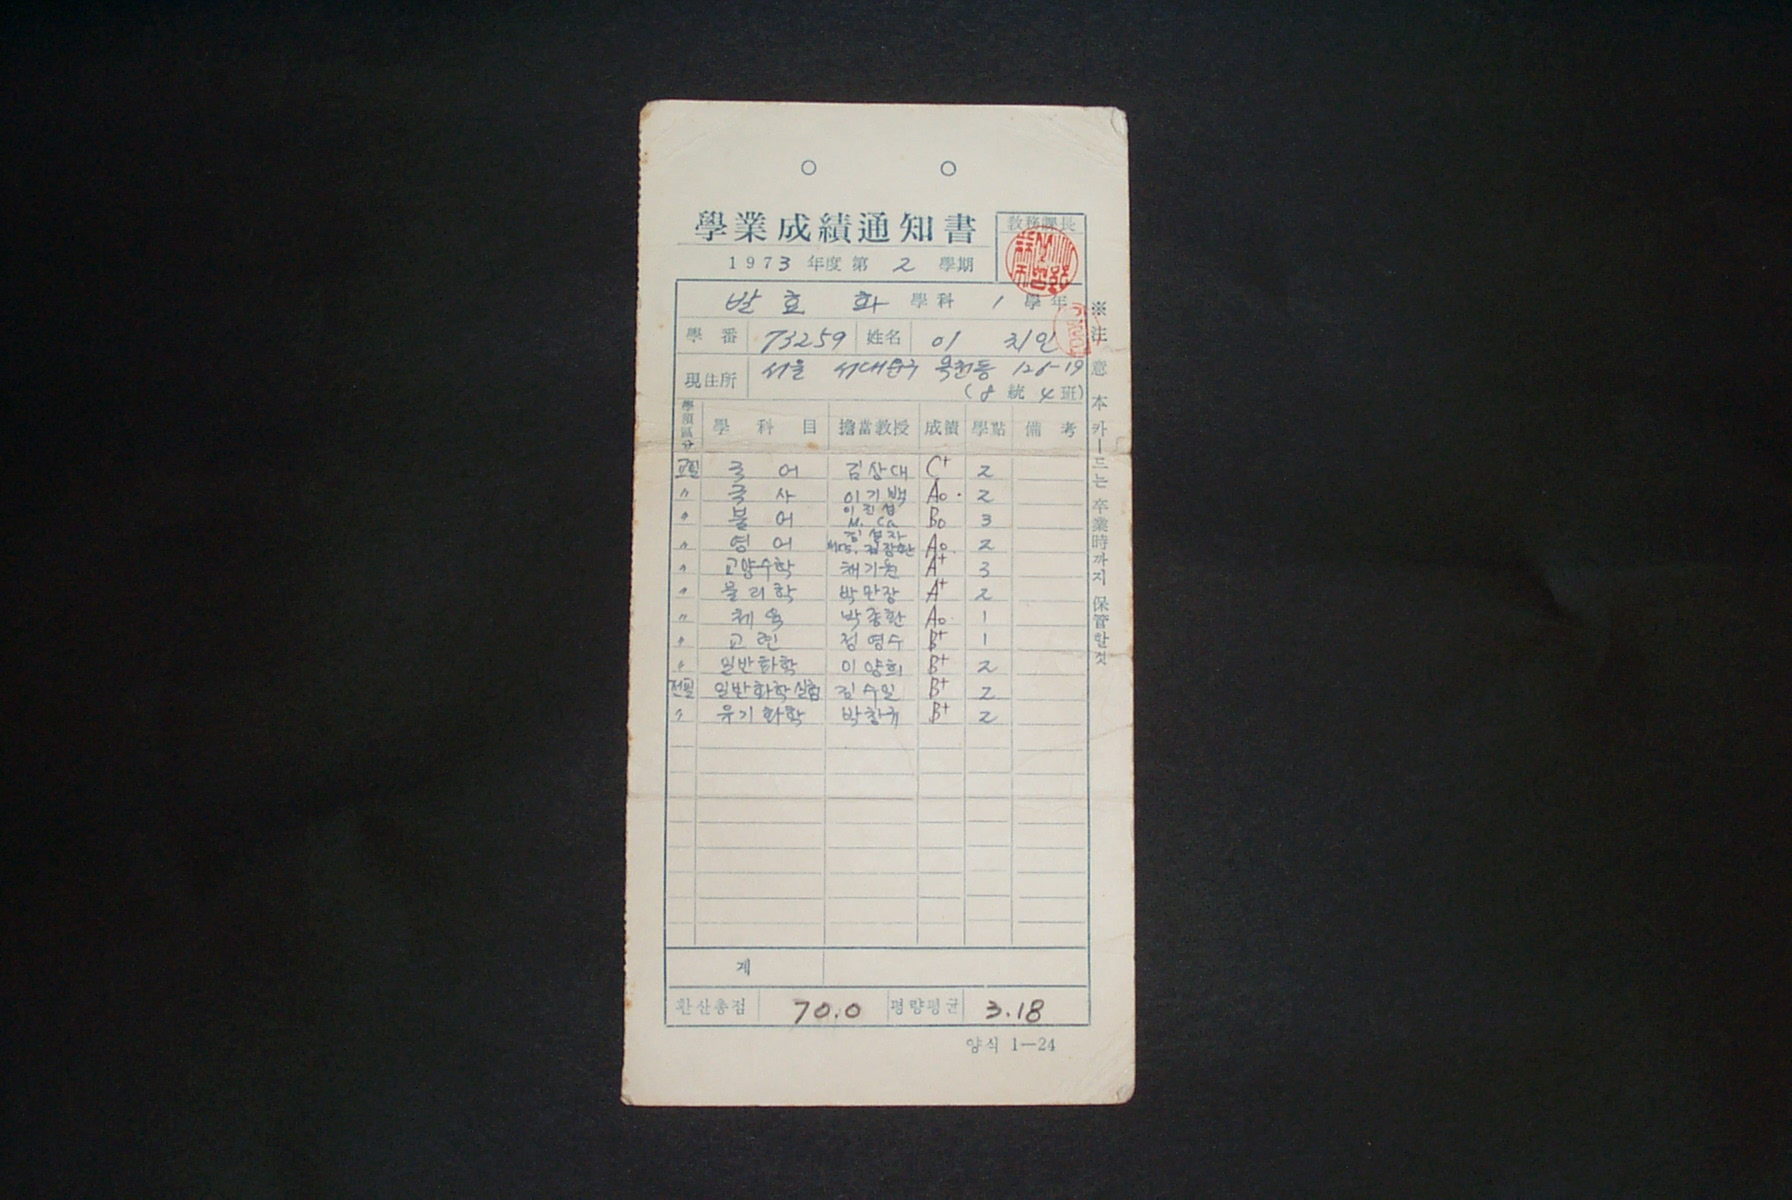 學業成績通知書
敎務課長
1973 年度 第 2 學期
발효 화 學科 1 學年
學番 73259 姓名 이 치인
現住所 서울 서대문구 옥천동 126-19
(8 統 4 班)
學科目 擔當敎授 成績 學點 備考
교필 국어 김상대 C+ 2
〃 국사 이기백 Ao 2
〃 불어 이진섭 M. Ca Bo 3
〃 영어 Ao 2
〃 교양수학 채기원 A+ 3
〃 물리학 박만장 A+ 2
〃 체육 박종환 Ao 1
〃 교련 정영수 B+ 1
〃 일반화학 이양희 B+ 2
전필 일반화학실험 김수일 B+ 2
〃 유기화학 박창규 B+ 2
계
환산총점 70.0 평량평균 3.18
양식 1—24
※ 注意 本 카ー드는 卒業時까지 保管할것